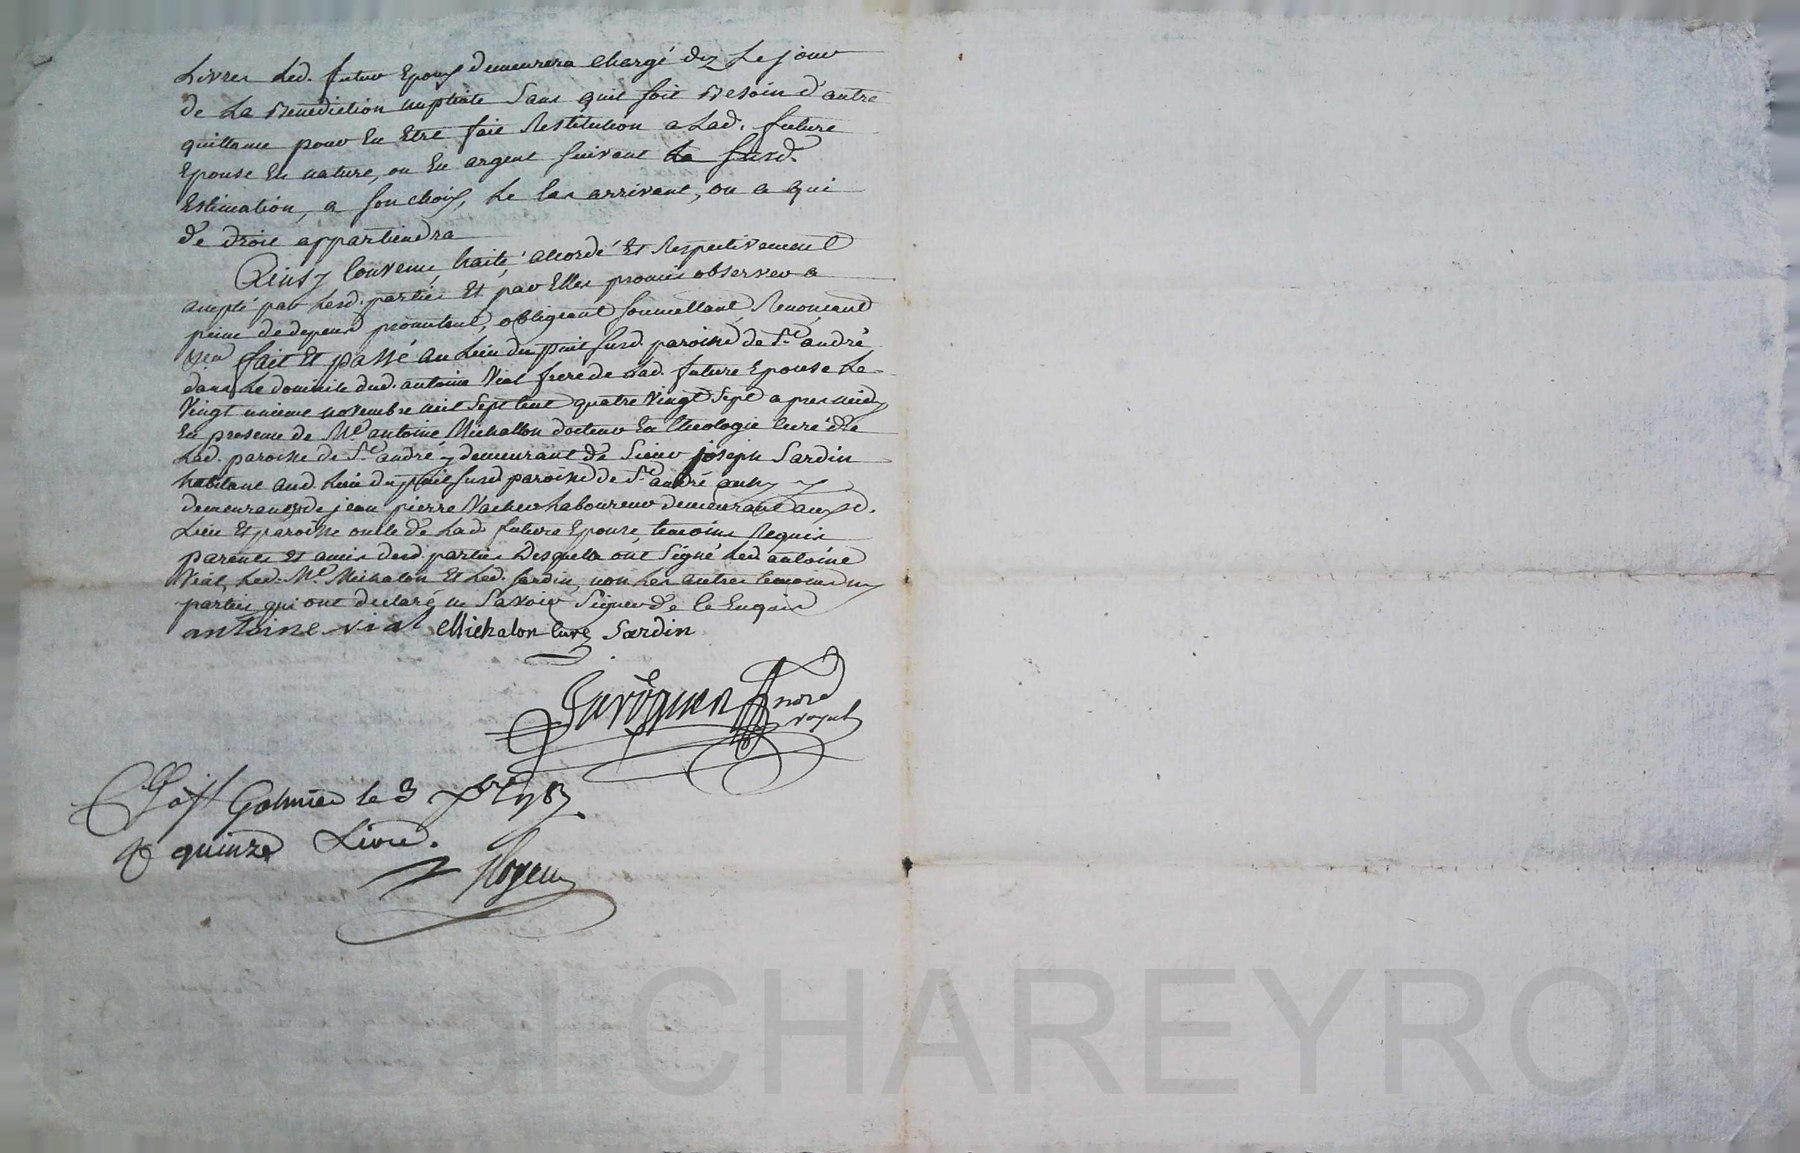 Livres Led. futur Epoux demeurera chargé dez Le jour
de La Benediction nuptiale Sans quil soit Besoin d'autre
quittance pour En Etre fait Restitution a Lad. future
Epouse En nature, ou En argent suivant La susd.
Estimation, a son choix, Le Cas arrivant, ou a qui
de droit appartiendra
Ainsy Convenu, traité, accordé Et Respectivement
accepté par Lesd. parties Et par Elles promis observer a
peine de depens promettant, obligeant, soumettant, Renonceant
fait Et passé au Lieu du puit susd. paroisse de St andré
dans Le domicile dud. antoine Vial frere de Lad. future Epouse Le
Vingt unieme novembre mil Sept Cent quatre Vingt Sept a pres midy
En presence de Me antoine Michallon docteur En theologie Curé de
Lad. paroisse de St andré y demeurant de Sieur joseph Sardin
habitant aud. Lieu du puit susd paroisse de St andré
demeurant de jean pierre Vacher Laboureur demeurant aux d.
Lieu Et paroisse de Lad future Epouse, temoins Requis
parents Et amis desd. parties Lesquels ont Signé Led. antoine
Vial, Led. Me Michalon Et Led. Sardin, non Les autres temoins ny
parties qui ont declaré ne Savoir Signer de ce Enquis
antoine vial Michalon Curé Sardin
nore
royal
Galmier le 3 xbre 1787
quinze Livres.
Pascal CHAREYRON